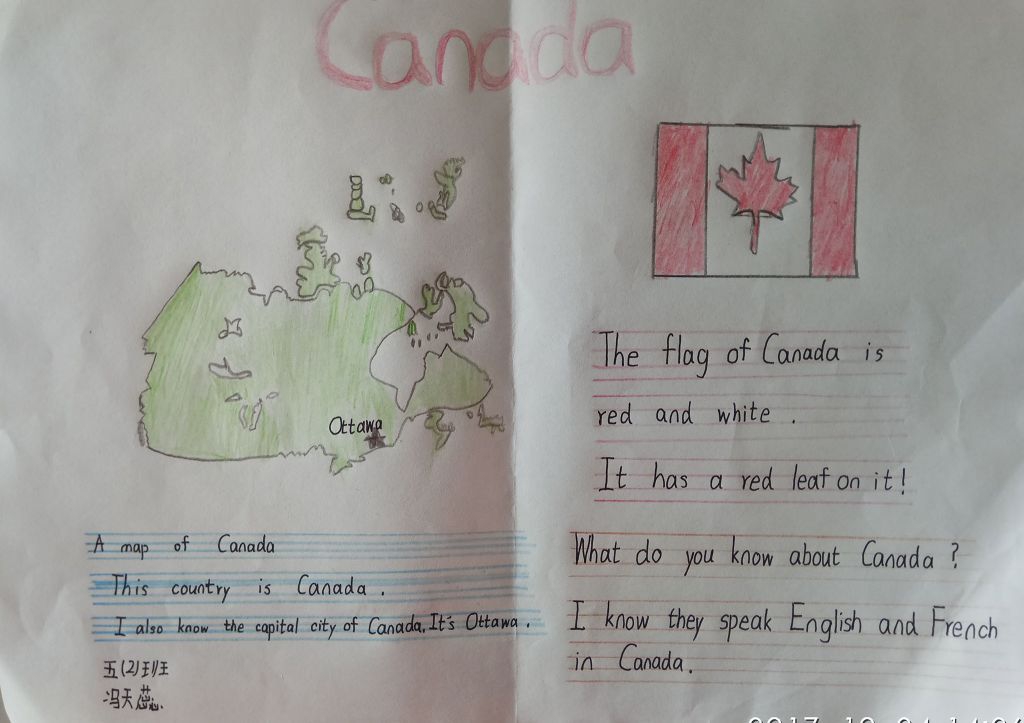 Canada
Ottawa
A map of Canada
This country is Canada.
I also know the capital city of Canada. It's Ottawa.
五(2)班
冯天蕊
The flag of Canada is
red and white.
It has a red leaf on it!
What do you know about Canada?
I know they speak English and French
in Canada.